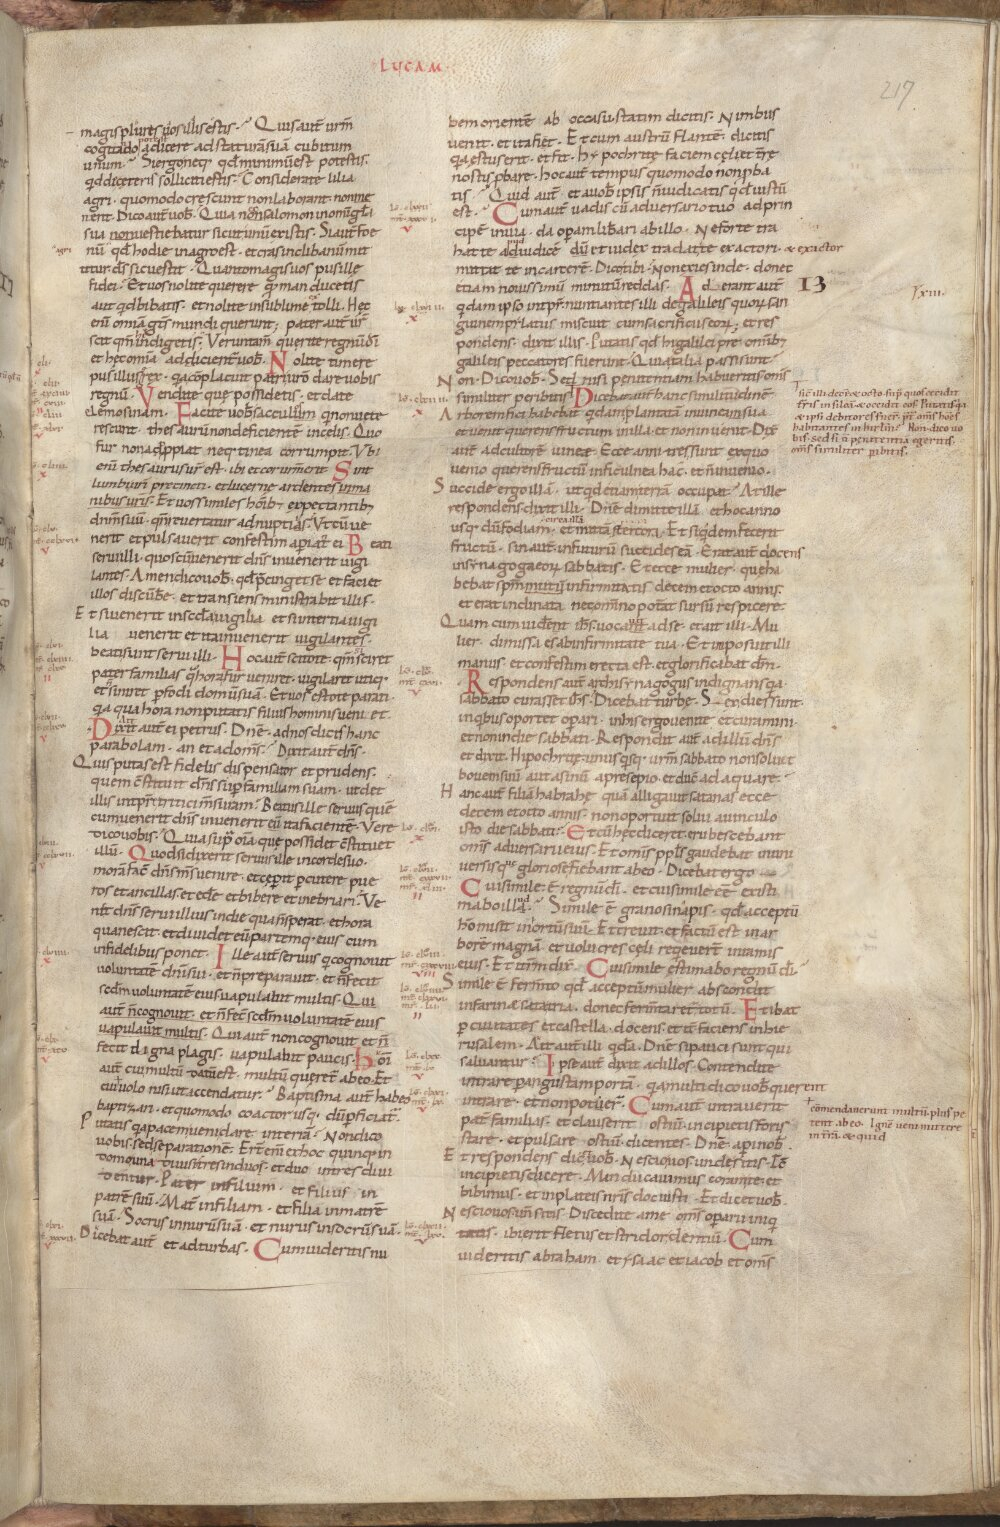 LUCAM
217
magis plures vos illis estis. Quis autē vrm̄
cogitando potest adicere ad staturā suā cubitum
unum. Si ergo neq; qd minimū est potestis.
qd de ceteris solliciti estis. Considerate lilia
agri. quomodo crescunt non laborant. non ne
nent. Dico autē vob. Quia non salomon in omī gla
sua non vestiebatur sicut unū ex istis. Si autē foe
nū qd hodie in agro est. et cras in clibanū mit
titur dn̄s sic vestit. Quanto magis vos pusille
fidei. Et vos nolite querere quē manducetis
aut qd bibatis. et nolite in sublime tolli. Hęc
enī omīa gts mundi querunt; pater autē vr̄
scit qm̄ his indigetis. Veruntam̄ querite regnū dī
et hęc omīa addicient vob. Nolite timere
pusillus grex. qa cōplacuit patri vrō dare vobis
regnū. Vendite quę possidetis. et date
elemosinam. Facite vob sacculum q̄ non vete
rescunt. thesaurū non deficientem in celis. Quo
fur non appropiat neq; tinea corrumpit. Vbi
enī thesaurus vr̄ est. ibi et cor vrm̄ erit. Sint
lumbi vrī precincti. et lucerne ardentes in ma
nibus vrīs. Et vos similes homīb; expectantib;
dnm̄ suū. qn̄ revertatur a nuptiis. Vt cū ve
nerit et pulsaverit confestim aperiat ei. Beati
servi illi. quos cū venerit dn̄s invenerit vigi
lantes. Amen dico vob. qd p̄cinget se et faciet
illos discūbe. et transiens ministrabit illis.
Et si venerit in scda vigilia et si in tertia vigi
lia venerit et ita invenerit vigilantes.
beati sunt servi illi. Hoc autē scitote qm̄ si sciret
pater familias qa hora fur veniret. vigilaret utiq;
et sineret pfodi domū suā. Et vos estote parati
qa qua hora non putatis filius hominis veni et.
Dixit autē ei petrus. Dnē. ad nos dicis hanc
parabolam. an et ad om̄s. Dixit autē dn̄s.
Quis putas est fidelis dispensator et prudens.
quem cstituit dn̄s sup̄ familiam suam. ut det
illis in tpr̄ tritici m̄suram. Beatus ille servus quē
cum venerit dn̄s invenerit eū ita faciente. Vere
dico vobis. Quia sup̄ omīa quę possidet cstituet
illū. Quod si dixerit servus ille in corde suo.
morā fac dn̄s ms venire. et cęperit percutere pue
ros et ancillas. et edē et bibere et inebriari. Ve
niet dn̄s servi illius in die qua n̄ sperat. et hora
qua nescit. et dividet eū partemq; eius cum
infidelibus ponet. Ille autē servus q̄ cognovit
voluntatē dnī sui. et n̄ preparavit. et n̄ fecit
scdm voluntatē eius vapulabit multis. Qui
autē n̄ cognovit. et n̄ fec̄ scdm voluntatē eius
vapulavit multis. Qui autē non cognovit et n̄
fecit digna plagis. vapulabit paucis. Hōi
autē cui multū datū est. multū queret̄ ab eo. Et
quid volo nisi ut accendatur. Baptisma autē habeo
baptizari. et quomodo coactor usq; dū perficiat.
Putatis qa pacem veni dare in terrā. Non dico
vobis. sed separationē. Erunt enī ex hoc quinq; in
domo una divisi tres in duos. et duo in tres divi
dentur. Pater in filium. et filius in
patrē suū. Mat̄ in filiam. et filia in matrē
suā. Socrus in nurū suā. et nurus in socrū suā.
Dicebat autē et ad turbas. Cum videritis nu
bem oriente ab occasu statim dicitis. Nimbus
venit. et ita fiet. Et cum austrū flante. dicitis
qa estus erit. et fit. Hypochritę faciem cęli et tr̄e
nostis pbare. hoc autē tempus quomodo non pba
tis. Quid autē et a vob ipsis n̄ iudicatis qd iustū
est. Cum autē vadis cū adversario tuo ad prin
cipē in via. da operam libari ab illo. Ne forte tra
hat te apud iudicē. et iudex tradat te exactori. & exactor
mittat te in carcerē. Dico tibi. Non exies inde. donec
etiam novissimū minutū reddas. Aderant autē 13
qdam ipso in tpr̄ nuntiantes illi de galileis quorū san
guinem pilatus miscuit cum sacrificiis eorū. et res
pondens. dixit illis. Putatis qd hi galilei prę omīb;
galileis peccatores fuerunt. Quia talia passi sunt.
Non. Dico vob. Sed nisi penitentiam habueritis om̄s
similiter peribitis. Dicebat autē hanc similitudinē.
Arborem fici habebat qdam plantatā in vinea sua
et venit querens fructum in illa. et non invenit. Dix̄
autē ad cultorē vineę. Ecce anni tres sunt ex quo
venio querens fructū in ficulnea hac. et n̄ invenio.
Succide ergo illā. ut qd etiam terrā occupat. At ille
respondens. dixit illi. Dnē. dimitte illā et hoc anno
usq; dū fodiam circa illā et mittā stercora. Et siqdem fecerit
fructū. sin autē in futurū succides eā. Erat autē docens
in synagoga eorū sabbatis. Et ecce mulier. quę ha
bebat spm̄ infirmitatis decem et octo annis.
et erat inclinata. nec om̄no potat sursū respicere.
Quam cum vidēnt ihs. vocavit ad se. et ait illi. Mu
lier dimissa es ab infirmitate tua. Et imposuit illi
manus. et confestim erecta est. et glorificabat dm̄.
Respondens autē archisynagogus indignans qa
sabbato curasset ihs. Dicebat turbę. Sex dies sunt
in qbus oportet opari. in his ergo venite. et curamini.
et non in die sabbati. Respondit autē ad illū dn̄s
et dixit. Hipochritę. unusqsq; vrm̄ sabbato non solvit
bovem sūi aut asinū a presepio. et ducē ad aquare.
Hanc autē filiā habrahę quā alligavit satanas ecce
decem et octo annis. non oportuit solvi a vinculo
isto die sabbati. Et cū hęc diceret. erubescebant
om̄s adversarii eius. Et omīs ppls gaudebat in uni
versis quę gloriose fiebant ab eo. Dicebat ergo
Cui simile ē regnū dī. et cui simile eē existi
mabo illud. Simile ē grano sinapis. qd acceptū
homo misit in ortū suū. Et crevit. et factū est in ar
borē magnā. et volucres cęli requievert in ramis
eius. Et iterm̄ dix̄. Cui simile estimabo regnū dī.
Simile ē fermto qd acceptū mulier abscondit
in farinę sata tria. donec fermtaret totū. Et ibat
p civitates et castella. docens. et iter faciens in hie
rusalem. Ait autē illi qdā. Dnē si pauci sunt qui
salvantur. Ipse autē dixit ad illos. Contendite
intrare p angustam portā. qa multi dico vob querent
intrare. et non poter. Cum autē intraverit
pat familias. et clauserit ostiū. incipietis foris
stare. et pulsare ostiū. dicentes. Dnē. aperi nob.
Et respondens dic̄ vob. Nescio vos unde sitis. Tc̄
incipietis dicere. Manducavimus coram te. et
bibimus. et in plateis nrīs docuisti. Et dicet vob.
Nescio vos unde sitis. Discedite a me om̄s operarii iniq
tatis. ibi erit fletus et stridor dentiū. Cum
videritis abraham et ysaac et iacob et om̄s
agri
xiii.
sic illi decē & octo. sup quos cecidit
turris in siloa. & occidit eos. Putatis qa
& ipsi debitores fuer pr̄ om̄s hoēs
habitantes in hirl̄m. Non. dico vo
bis. sed si n̄ penitentiā egeritis.
om̄s similiter pibitis.
comendaverunt multū. plus pe
tent ab eo. Ignē veni mittere
in trā. & quid